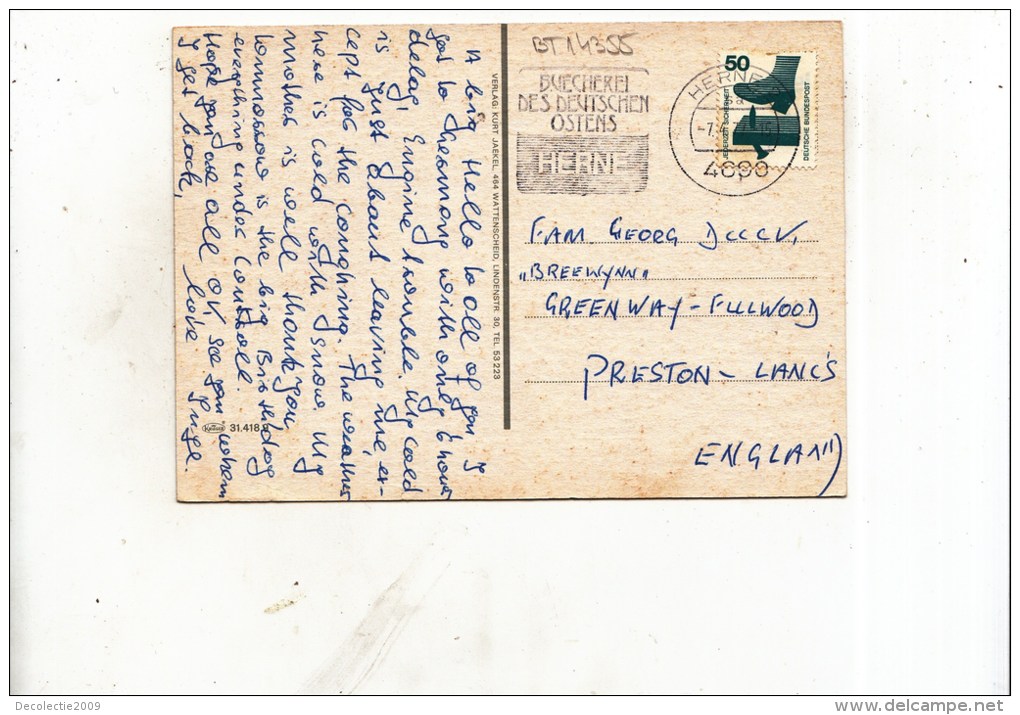 A big Hello to all of you y
got to Germany with only 6 hour
delay, Engine trouble. My cold
is just about leaving me, ex-
cept for the coughing. The weather
here is cold with snow. My
mother is well thank you
tommorow is the big Birthday
everything under controll.
Hope you are all OK, see you when
y get back,
love Inge.
VERLAG: KURT JAEKEL, 464 WATTENSCHEID, LINDENSTR. 30, TEL 53 223
Krüger 31.418.9
BT14355
BUECHEREI
DES DEUTSCHEN
OSTENS
HERNE
HERNE
4690
50
JEDERZEIT SICHERHEIT
DEUTSCHE BUNDESPOST
FAM. GEORG
„BREEWYNN"
GREENWAY - FULWOOD
PRESTON - LANC'S
ENGLAND
Decolectie2009
www.delcampe.net